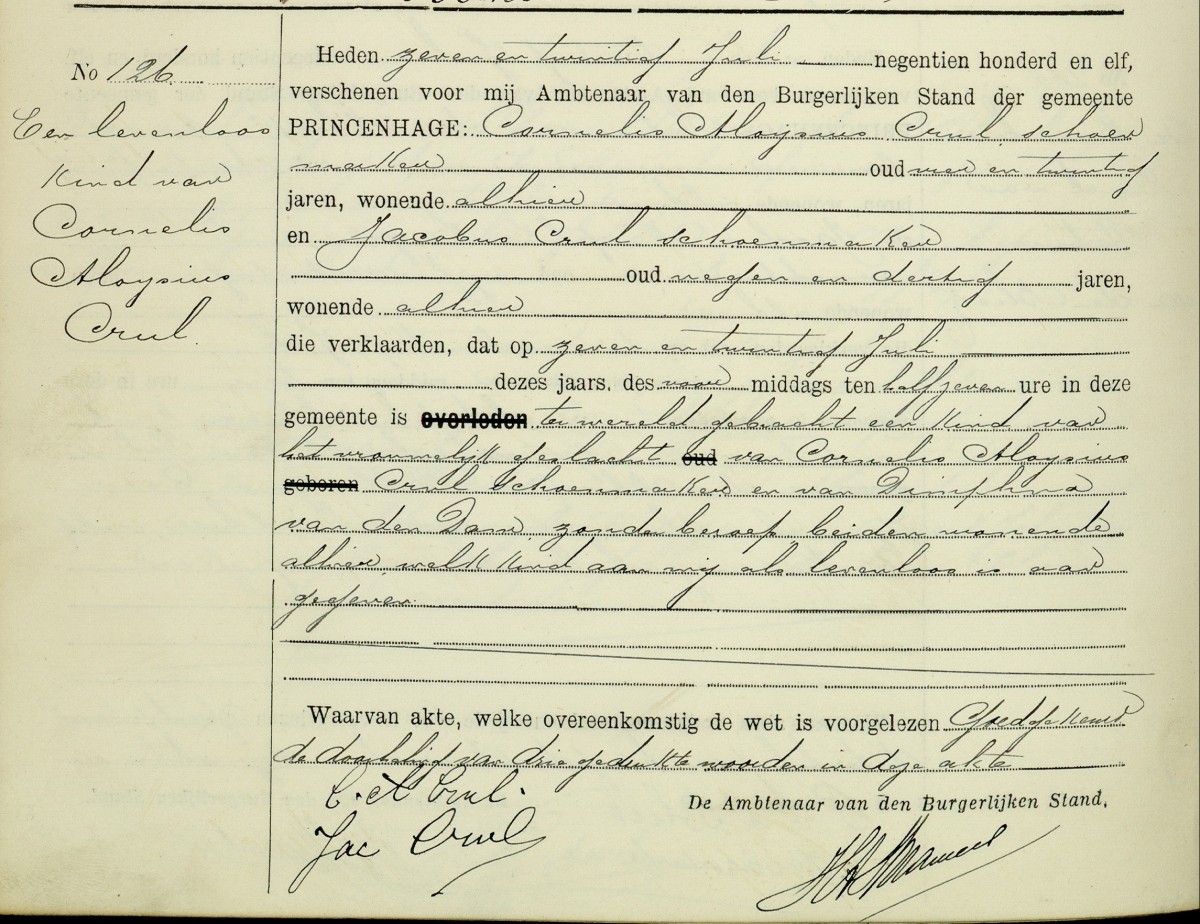 No 126
Een levenloos
kind van
Cornelis
Aloysius
Crul.
Heden zeven en twintig Juli negentien honderd en elf,
verschenen voor mij Ambtenaar van den Burgerlijken Stand der gemeente
PRINCENHAGE: Cornelis Aloysius Crul schoen
maker oud vier en twintig
jaren, wonende alhier
en Jacobus Crul schoenmaker
oud negen en dertig jaren,
wonende alhier
die verklaarden, dat op zeven en twintig Juli
dezes jaars, des voor middags ten half zeven ure in deze
gemeente is overleden ter wereld gebracht een kind van
het vrouwelijk geslacht oud van Cornelis Aloysius
geboren Crul schoenmaker en van Dimphna
van den Dam, zonder beroep beiden wonende
alhier, welk kind aan mij als levenloos is aan
gegeven.
Waarvan akte, welke overeenkomstig de wet is voorgelezen Goedgekeurd
de doorhaling van drie gedrukte woorden in deze akte
C. A. Crul.
Jac Crul
De Ambtenaar van den Burgerlijken Stand,